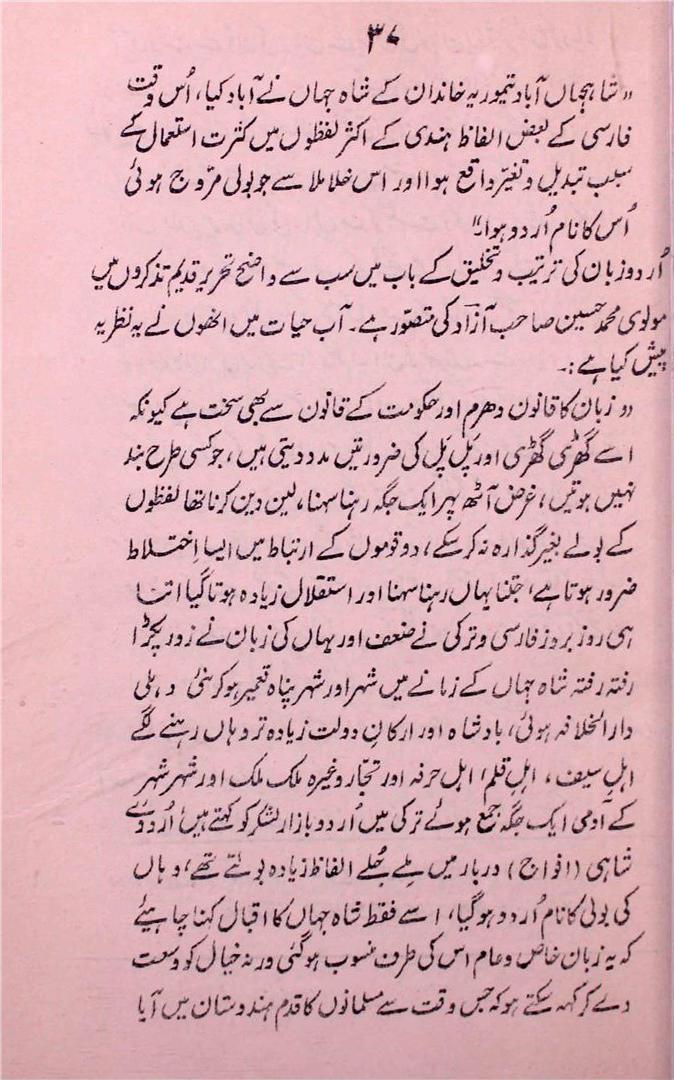 ۳۷
"شاہجہاں آباد تیموریہ خاندان کے شاہ جہاں نے آباد کیا، اُس وقت
فارسی کے بعض الفاظ ہندی کے اکثر لفظوں میں کثرت استعمال کے
سبب تبدیل و تغیر واقع ہوا اور اس خلا ملا سے جو بولی مروّج ہوئی
اُس کا نام اُردو ہوا۔"
اُردو زبان کی ترتیب و تخلیق کے باب میں سب سے واضح تحریر قدیم تذکروں میں
مولوی محمد حسین صاحب آزاد کی متصوّر ہے۔ آب حیات میں انھوں نے یہ نظریہ
پیش کیا ہے:۔
"زبان کا قانون دھرم اور حکومت کے قانون سے بھی سخت ہے کیونکہ
اسے گھڑی گھڑی اور پَل پَل کی ضرورتیں مدد دیتی ہیں، جو کسی طرح بند
نہیں ہوتیں، غرض آٹھ پہر ایک جگہ رہنا سہنا، لین دین کرنا تھا لفظوں
کے بولے بغیر گذارہ نہ کر سکے، دو قوموں کے ارتباط میں ایسا اِختلاط
ضرور ہوتا ہے، جتنا یہاں رہنا سہنا اور استقلال زیادہ ہوتا گیا اتنا
ہی روز بروز فارسی و ترکی نے ضعف اور یہاں کی زبان نے زور پکڑا
رفتہ رفتہ شاہ جہاں کے زمانے میں شہر اور شہر پناہ تعمیر ہو کر نئی دہلی
دارالخلافہ ہوئی، بادشاہ اور ارکانِ دولت زیادہ تر وہاں رہنے لگے
اہلِ سیف، اہلِ قلم، اہل حرفہ اور تجّار وغیرہ ملک ملک اور شہر شہر
کے آدمی ایک جگہ جمع ہوئے ترکی میں اُردو بازار لشکر کو کہتے ہیں، اُردوئے
شاہی (افواج) دربار میں ملے جُلے الفاظ زیادہ بولتے تھے، وہاں
کی بولی کا نام اُردو ہو گیا، اسے فقط شاہ جہاں کا اقبال کہنا چاہیئے
کہ یہ زبان خاص و عام اس کی طرف منسوب ہو گئی ورنہ خیال کو وسعت
دے کر کہہ سکتے ہو کہ جس وقت سے مسلمانوں کا قدم ہندوستان میں آیا